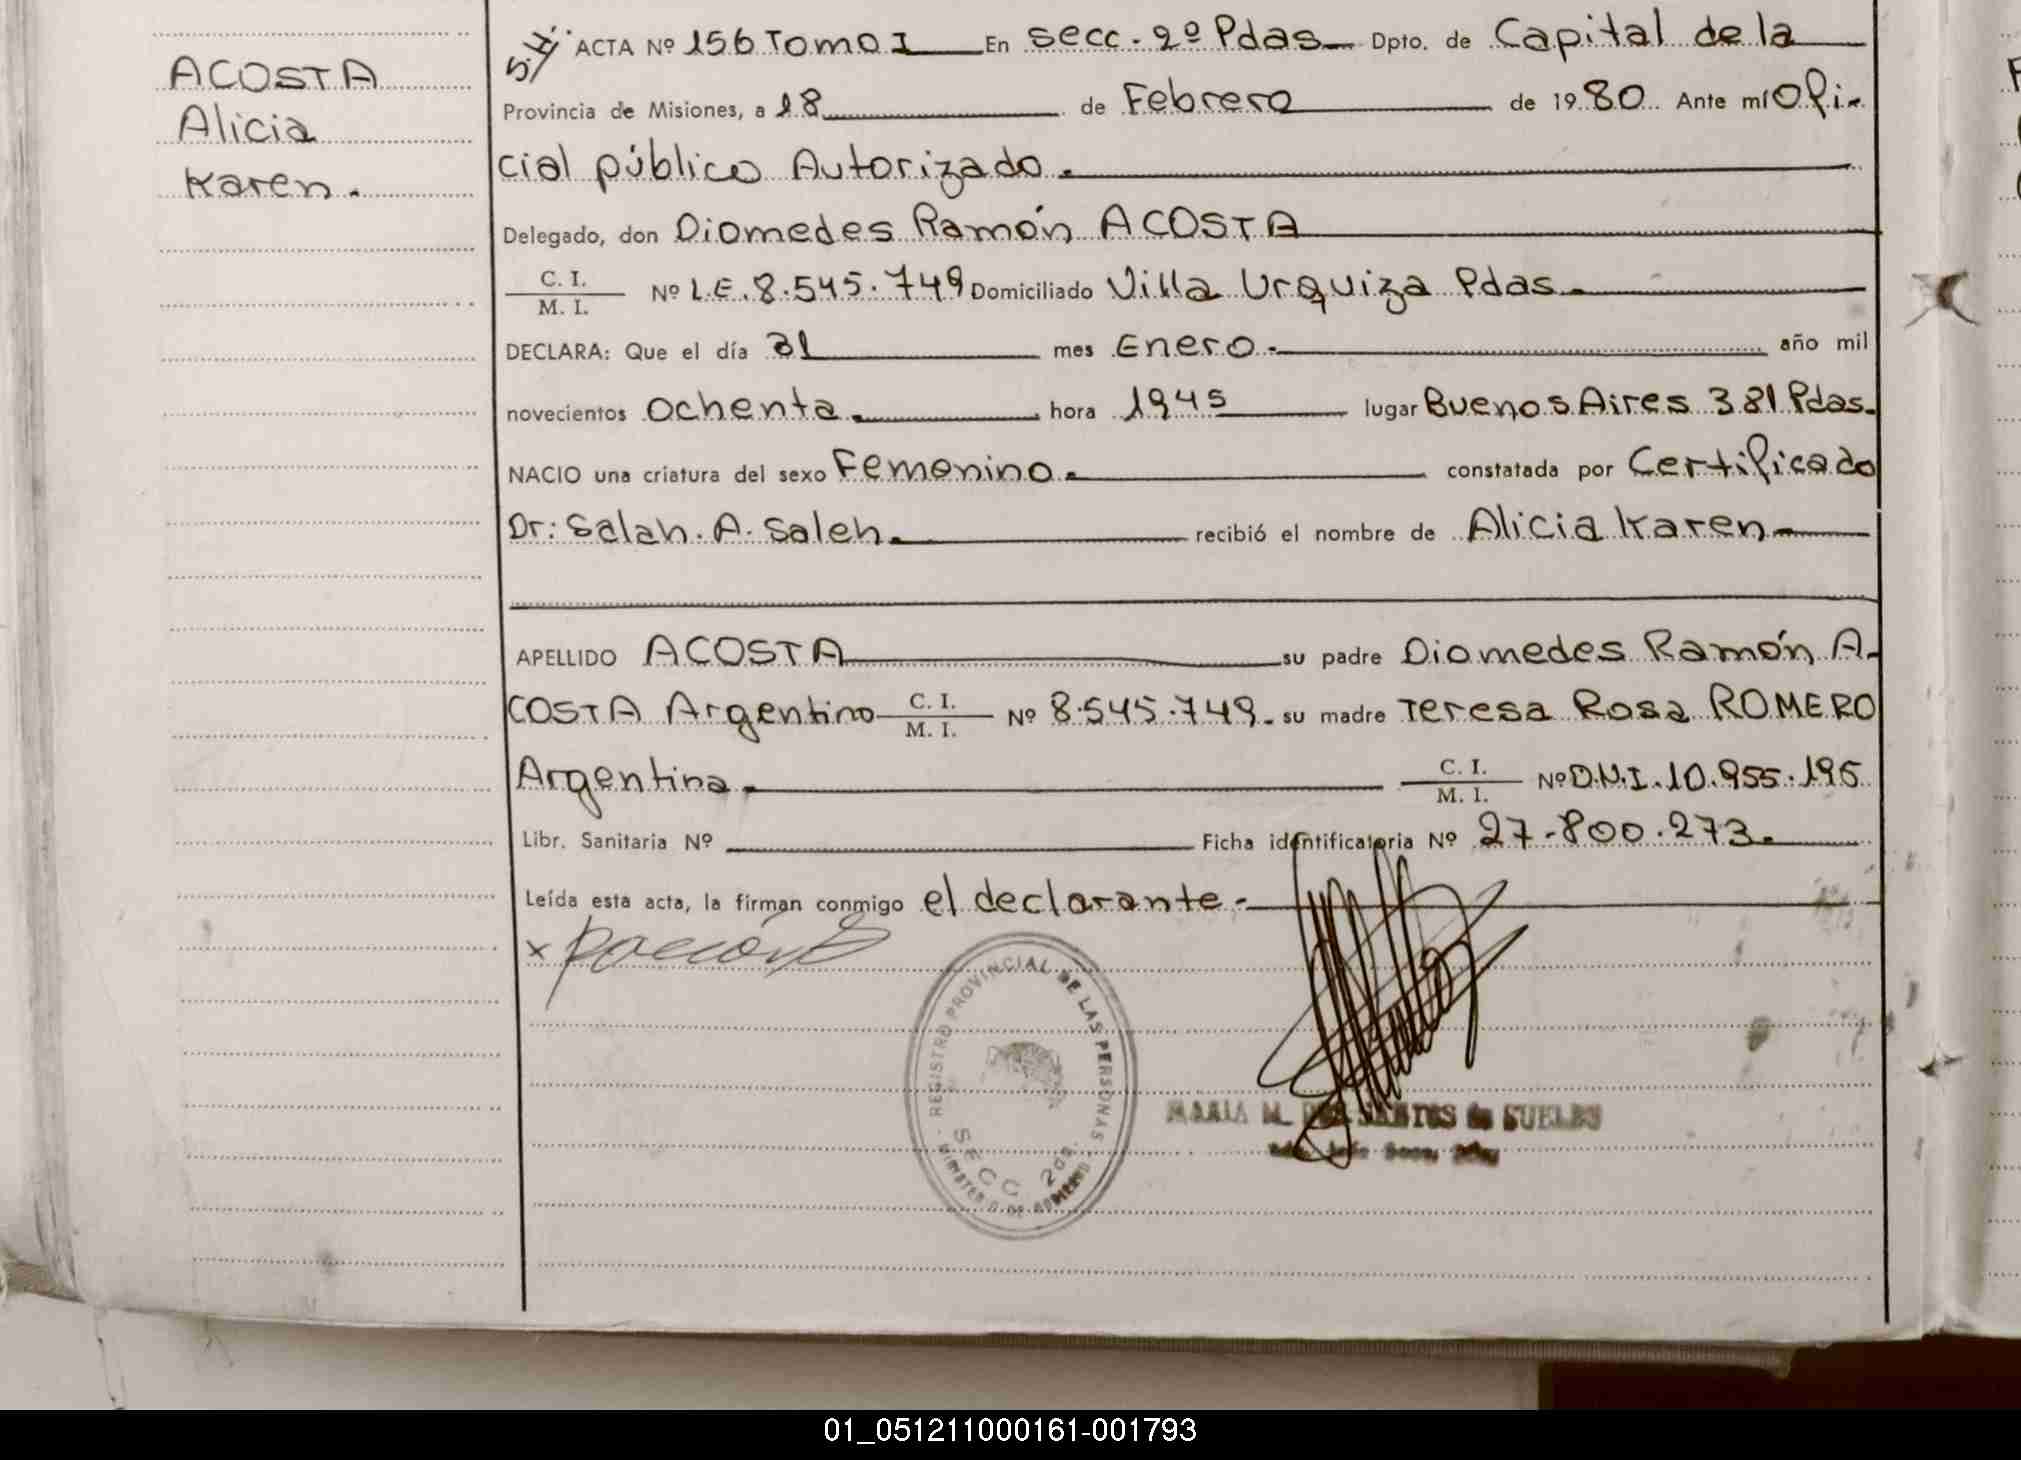 ACOSTA
Alicia
Karen.
S.H. ACTA Nº 156 Tomo I En secc. 2º Pdas Dpto. de Capital de la
Provincia de Misiones, a 18 de Febrero de 1980. Ante mí Ofi-
cial público Autorizado.
Delegado, don Diomedes Ramón ACOSTA
C. I.
M. I. Nº L.E. 8.545.749 Domiciliado Villa Urquiza Pdas.
DECLARA: Que el día 31 mes Enero. año mil
novecientos ochenta. hora 1945 lugar Buenos Aires 381 Pdas.
NACIO una criatura del sexo Femenino. constatada por Certificado
Dr: Salah. A. Saleh. recibió el nombre de Alicia Karen
APELLIDO ACOSTA su padre Diomedes Ramón A-
COSTA Argentino C. I. M. I. Nº 8.545.749. su madre Teresa Rosa ROMERO
Argentina. C. I. M. I. Nº D.N.I. 10.955.195
Libr. Sanitaria Nº Ficha identificatoria Nº 27.800.273.
Leída esta acta, la firman conmigo el declarante.-
x
REGISTRO PROVINCIAL DE LAS PERSONAS
SECC. 2da.
MINISTERIO DE GOBIERNO
MARIA M. DOS SANTOS de SUELDO
01_051211000161-001793